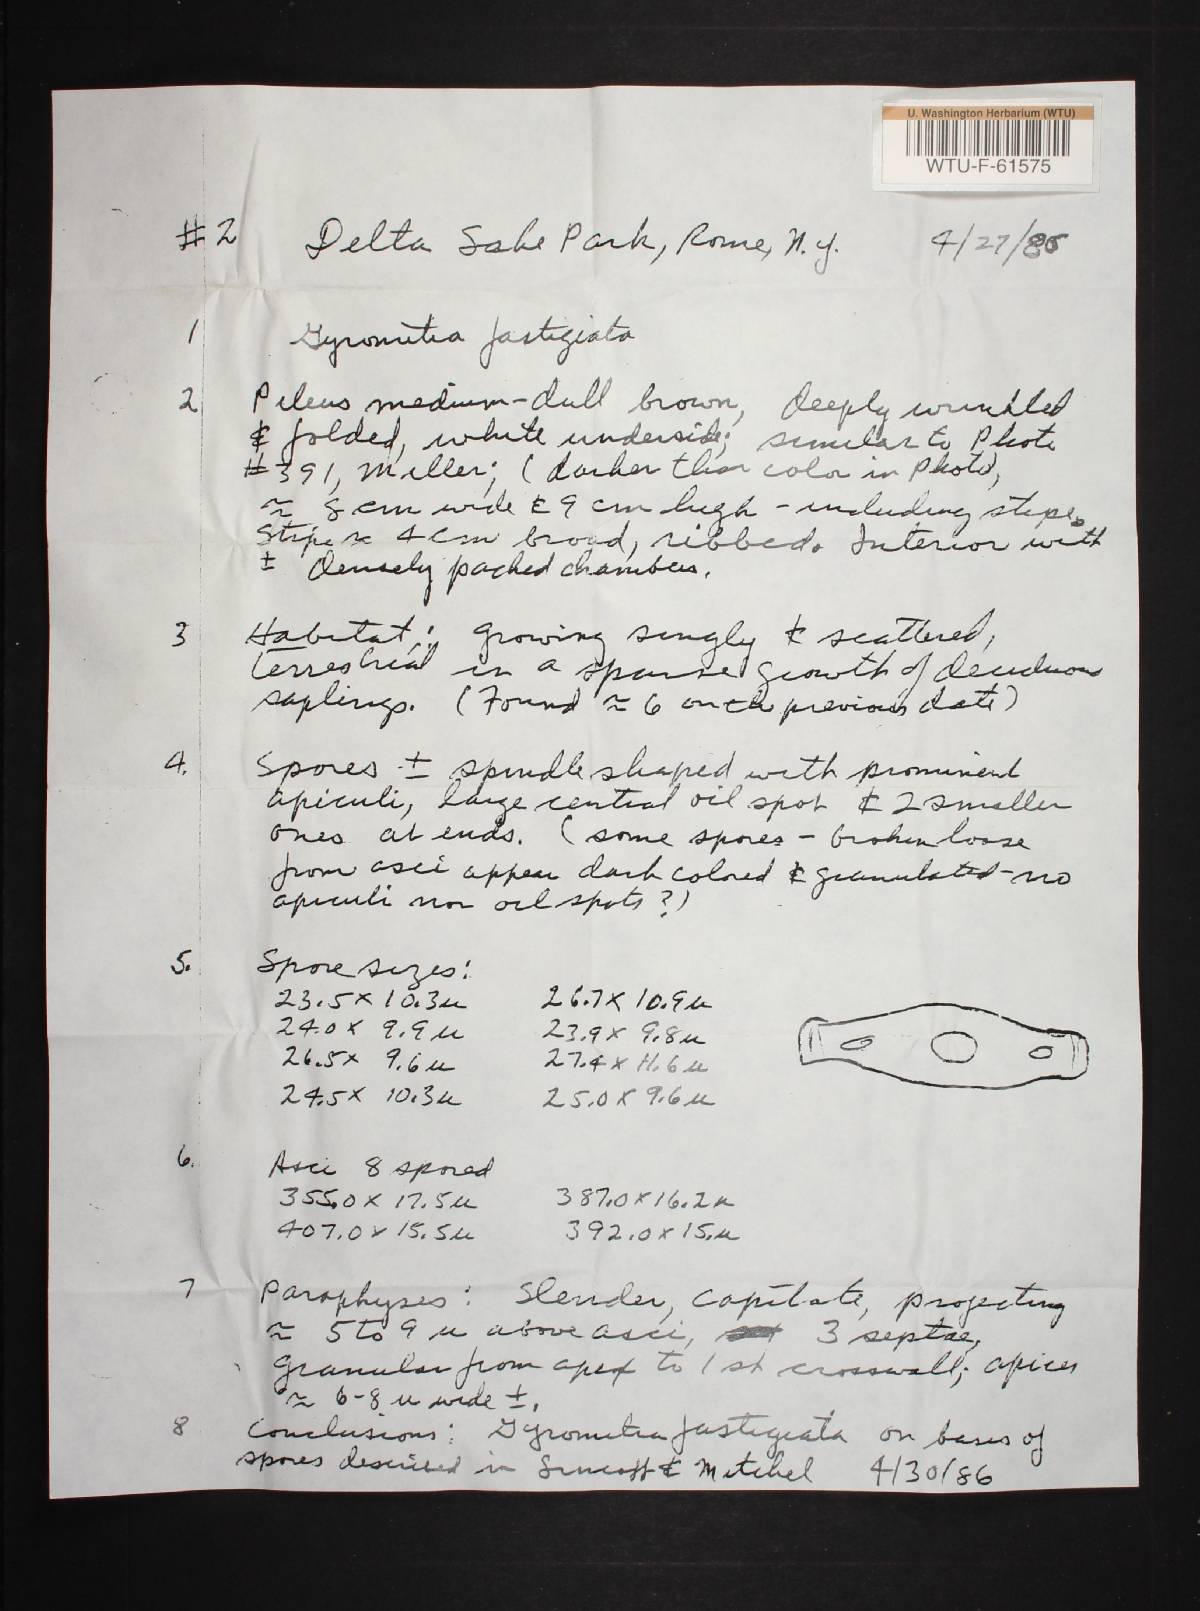 U. Washington Herbarium (WTU)
WTU-F-61575
#2 Delta Lake Park, Rome, N.Y. 4/27/86
1 Gyromitra fastigiata
2 Pileus medium-dull brown, deeply wrinkled
& folded, white underside; similar to Photo
#391, Miller; (darker than color in Photo),
≈ 8 cm wide & 9 cm high - including stipe.
Stipe ≈ 4 cm broad, ribbed. Interior with
± densely packed chambers.
3 Habitat: growing singly & scattered,
terrestrial in a sparse growth of deciduous
saplings. (Found ≈ 6 on the previous date)
4. Spores ± spindle shaped with prominent
apiculi, large central oil spot & 2 smaller
ones at ends. (some spores - broken loose
from asci appear dark colored & granulated - no
apiculi nor oil spots?)
5. Spore sizes:
23.5 x 10.3 u 26.7 x 10.9 u
24.0 x 9.9 u 23.9 x 9.8 u
26.5 x 9.6 u 27.4 x 11.6 u
24.5 x 10.3 u 25.0 x 9.6 u
6. Asci 8 spored
355.0 x 17.5 u 387.0 x 16.2 u
407.0 x 15.5 u 392.0 x 15. u
7 Paraphyses: Slender, capitate, projecting
≈ 5 to 9 u above asci, 3 septae,
granular from apex to 1st crosswall; apices
≈ 6-8 u wide ±.
8 Conclusions: Gyromitra fastigiata on bases of
spores described in & Mitchel 4/30/86